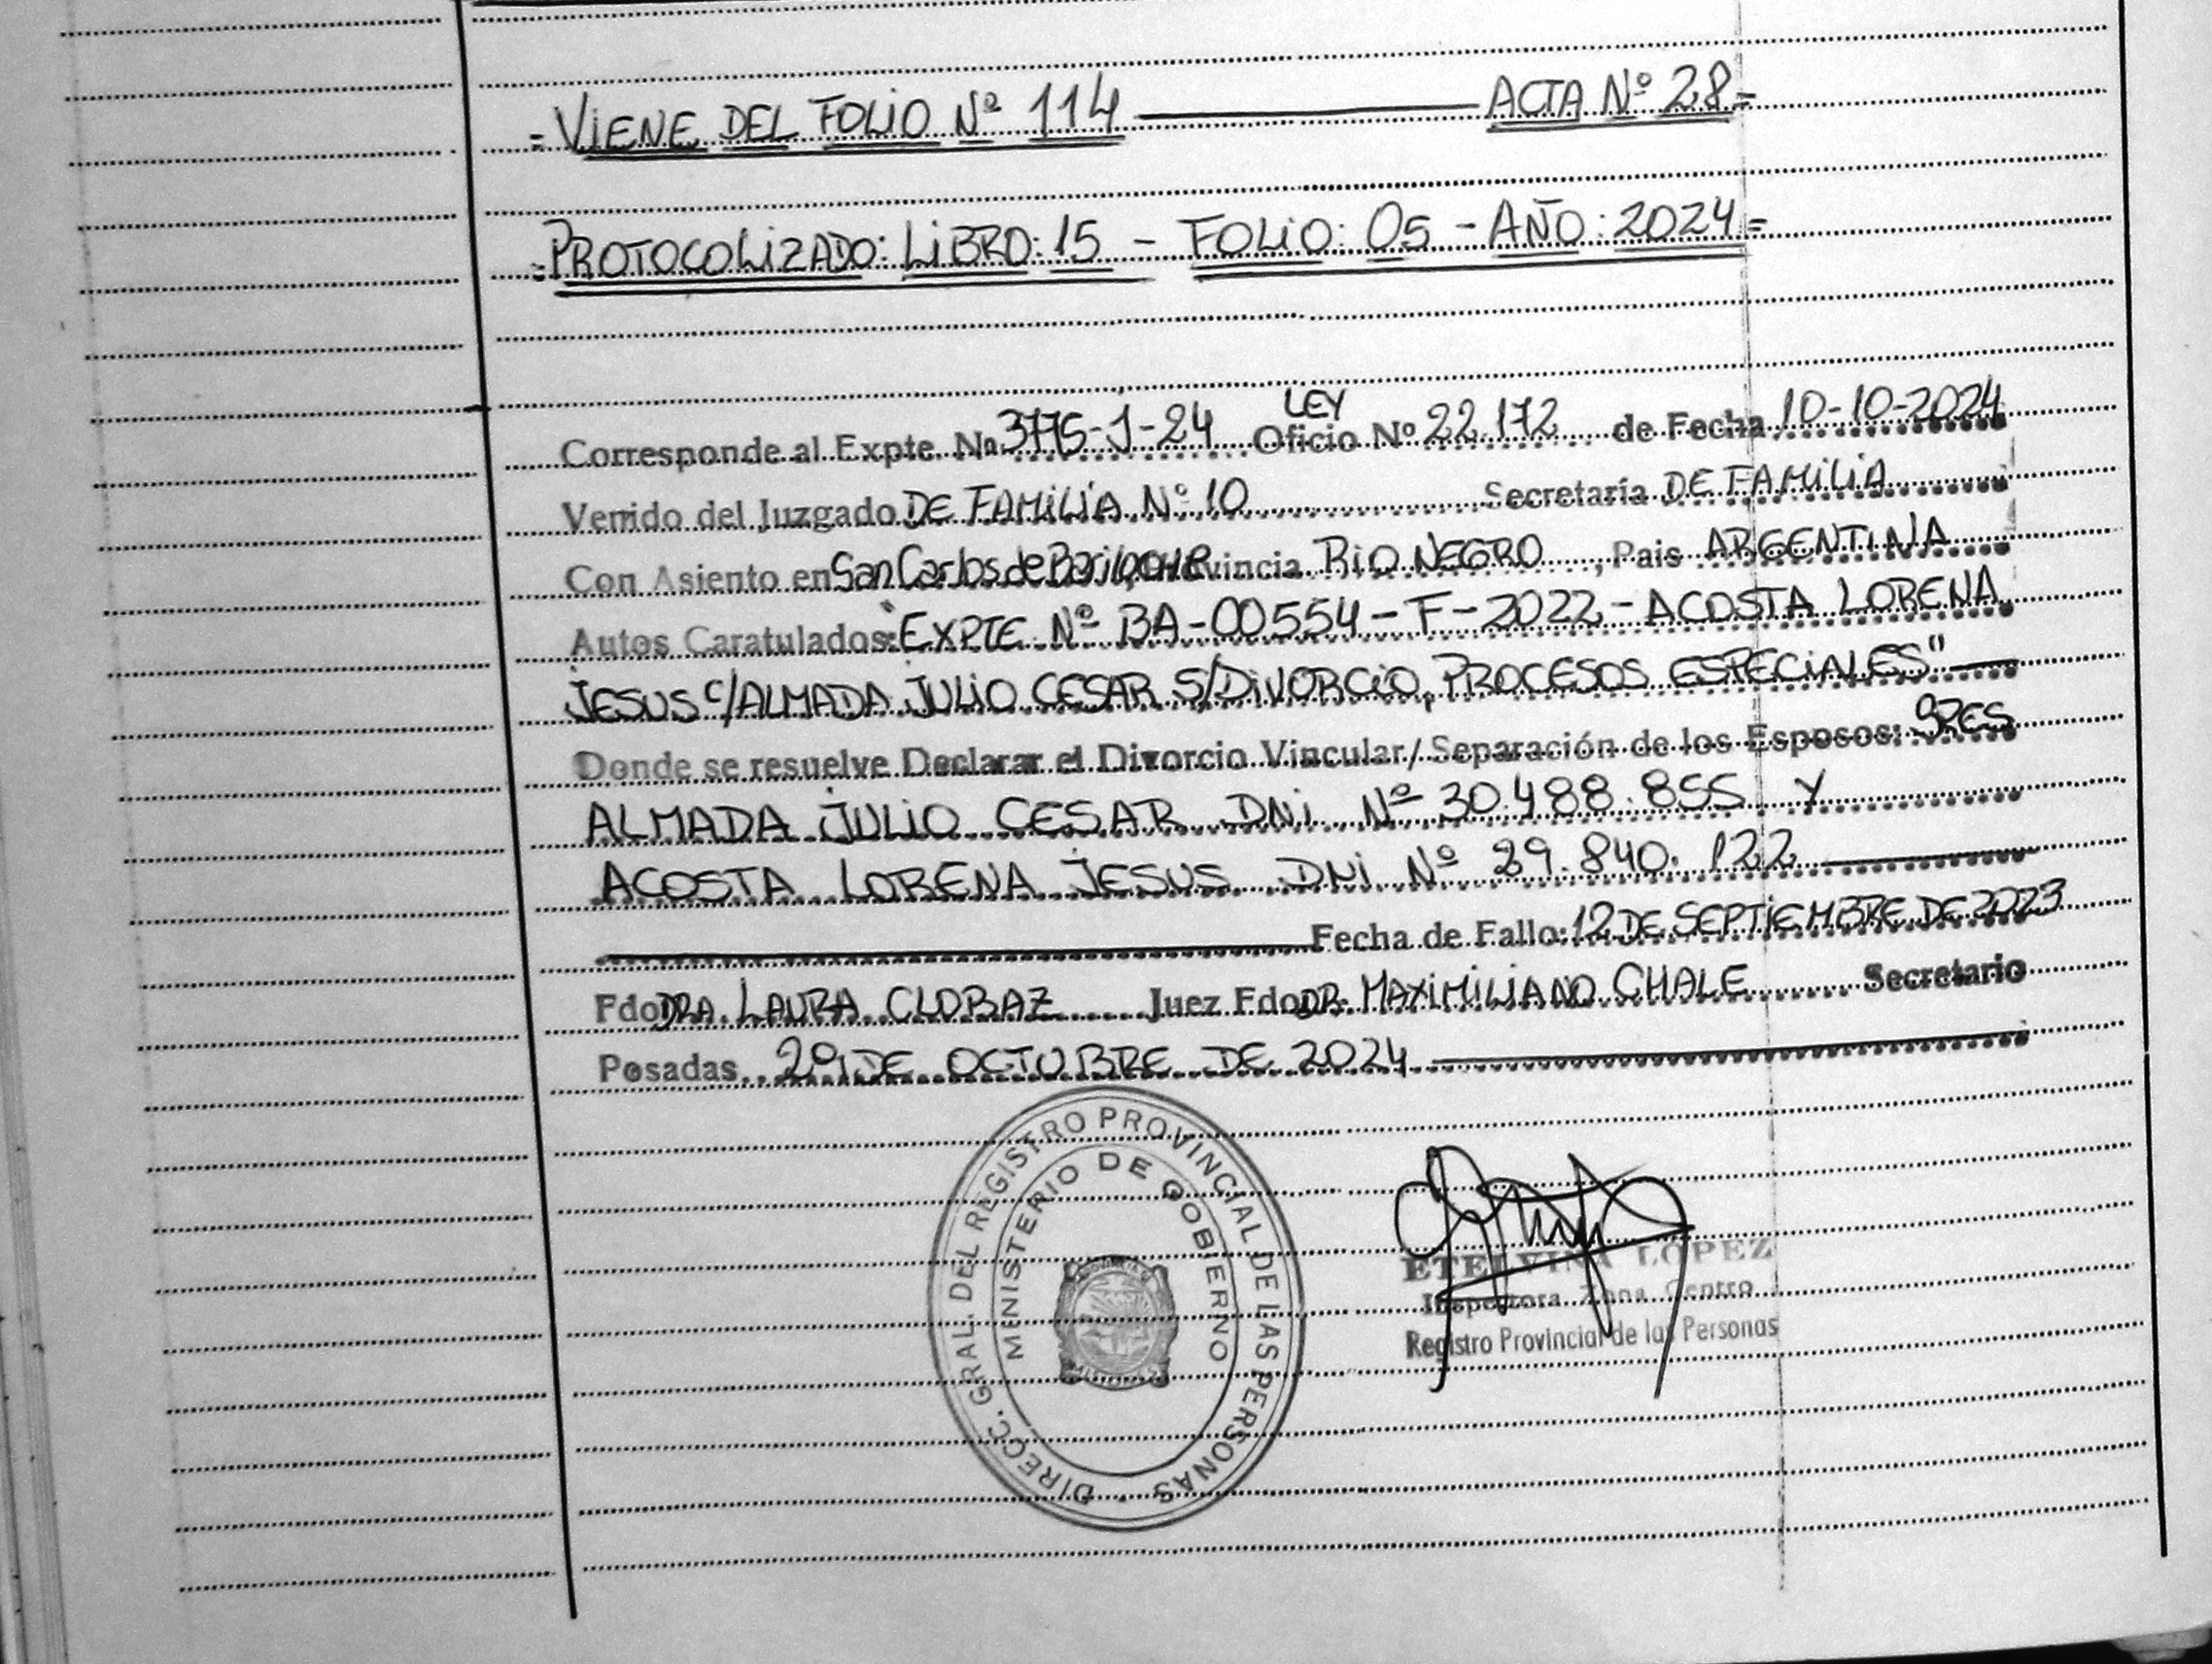 =VIENE DEL FOLIO Nº 114 ——— ACTA Nº 28=
=PROTOCOLIZADO: LIBRO: 15 - FOLIO: 05 - AÑO: 2024=
LEY
Corresponde al Expte. Nº 3775-J-24 Oficio Nº 22.172 de Fecha 10-10-2024
Venido del Juzgado DE FAMILIA Nº 10 Secretaría DE FAMILIA
Con Asiento en San Carlos de Bariloche Provincia RIO NEGRO, Pais ARGENTINA
Autos Caratulados: "EXPTE Nº BA-00554-F-2022-ACOSTA LORENA
JESUS C/ALMADA JULIO CESAR S/DIVORCIO, PROCESOS ESPECIALES"
Donde se resuelve Declarar el Divorcio Vincular/Separación de los Esposos: SRES
ALMADA JULIO CESAR DNI Nº 30.488.855 Y
ACOSTA LORENA JESUS DNI Nº 29.840.122
Fecha de Fallo: 12 DE SEPTIEMBRE DE 2023
Fdo DRA. LAURA CLOBAZ Juez Fdo DR. MAXIMILIANO CHALE Secretario
Posadas, 29 DE OCTUBRE DE 2024
DIRECC. GRAL. DEL REGISTRO PROVINCIAL DE LAS PERSONAS
MINISTERIO DE GOBIERNO
ETELVINA LOPEZ
Inspectora Zona Centro
Registro Provincial de las Personas